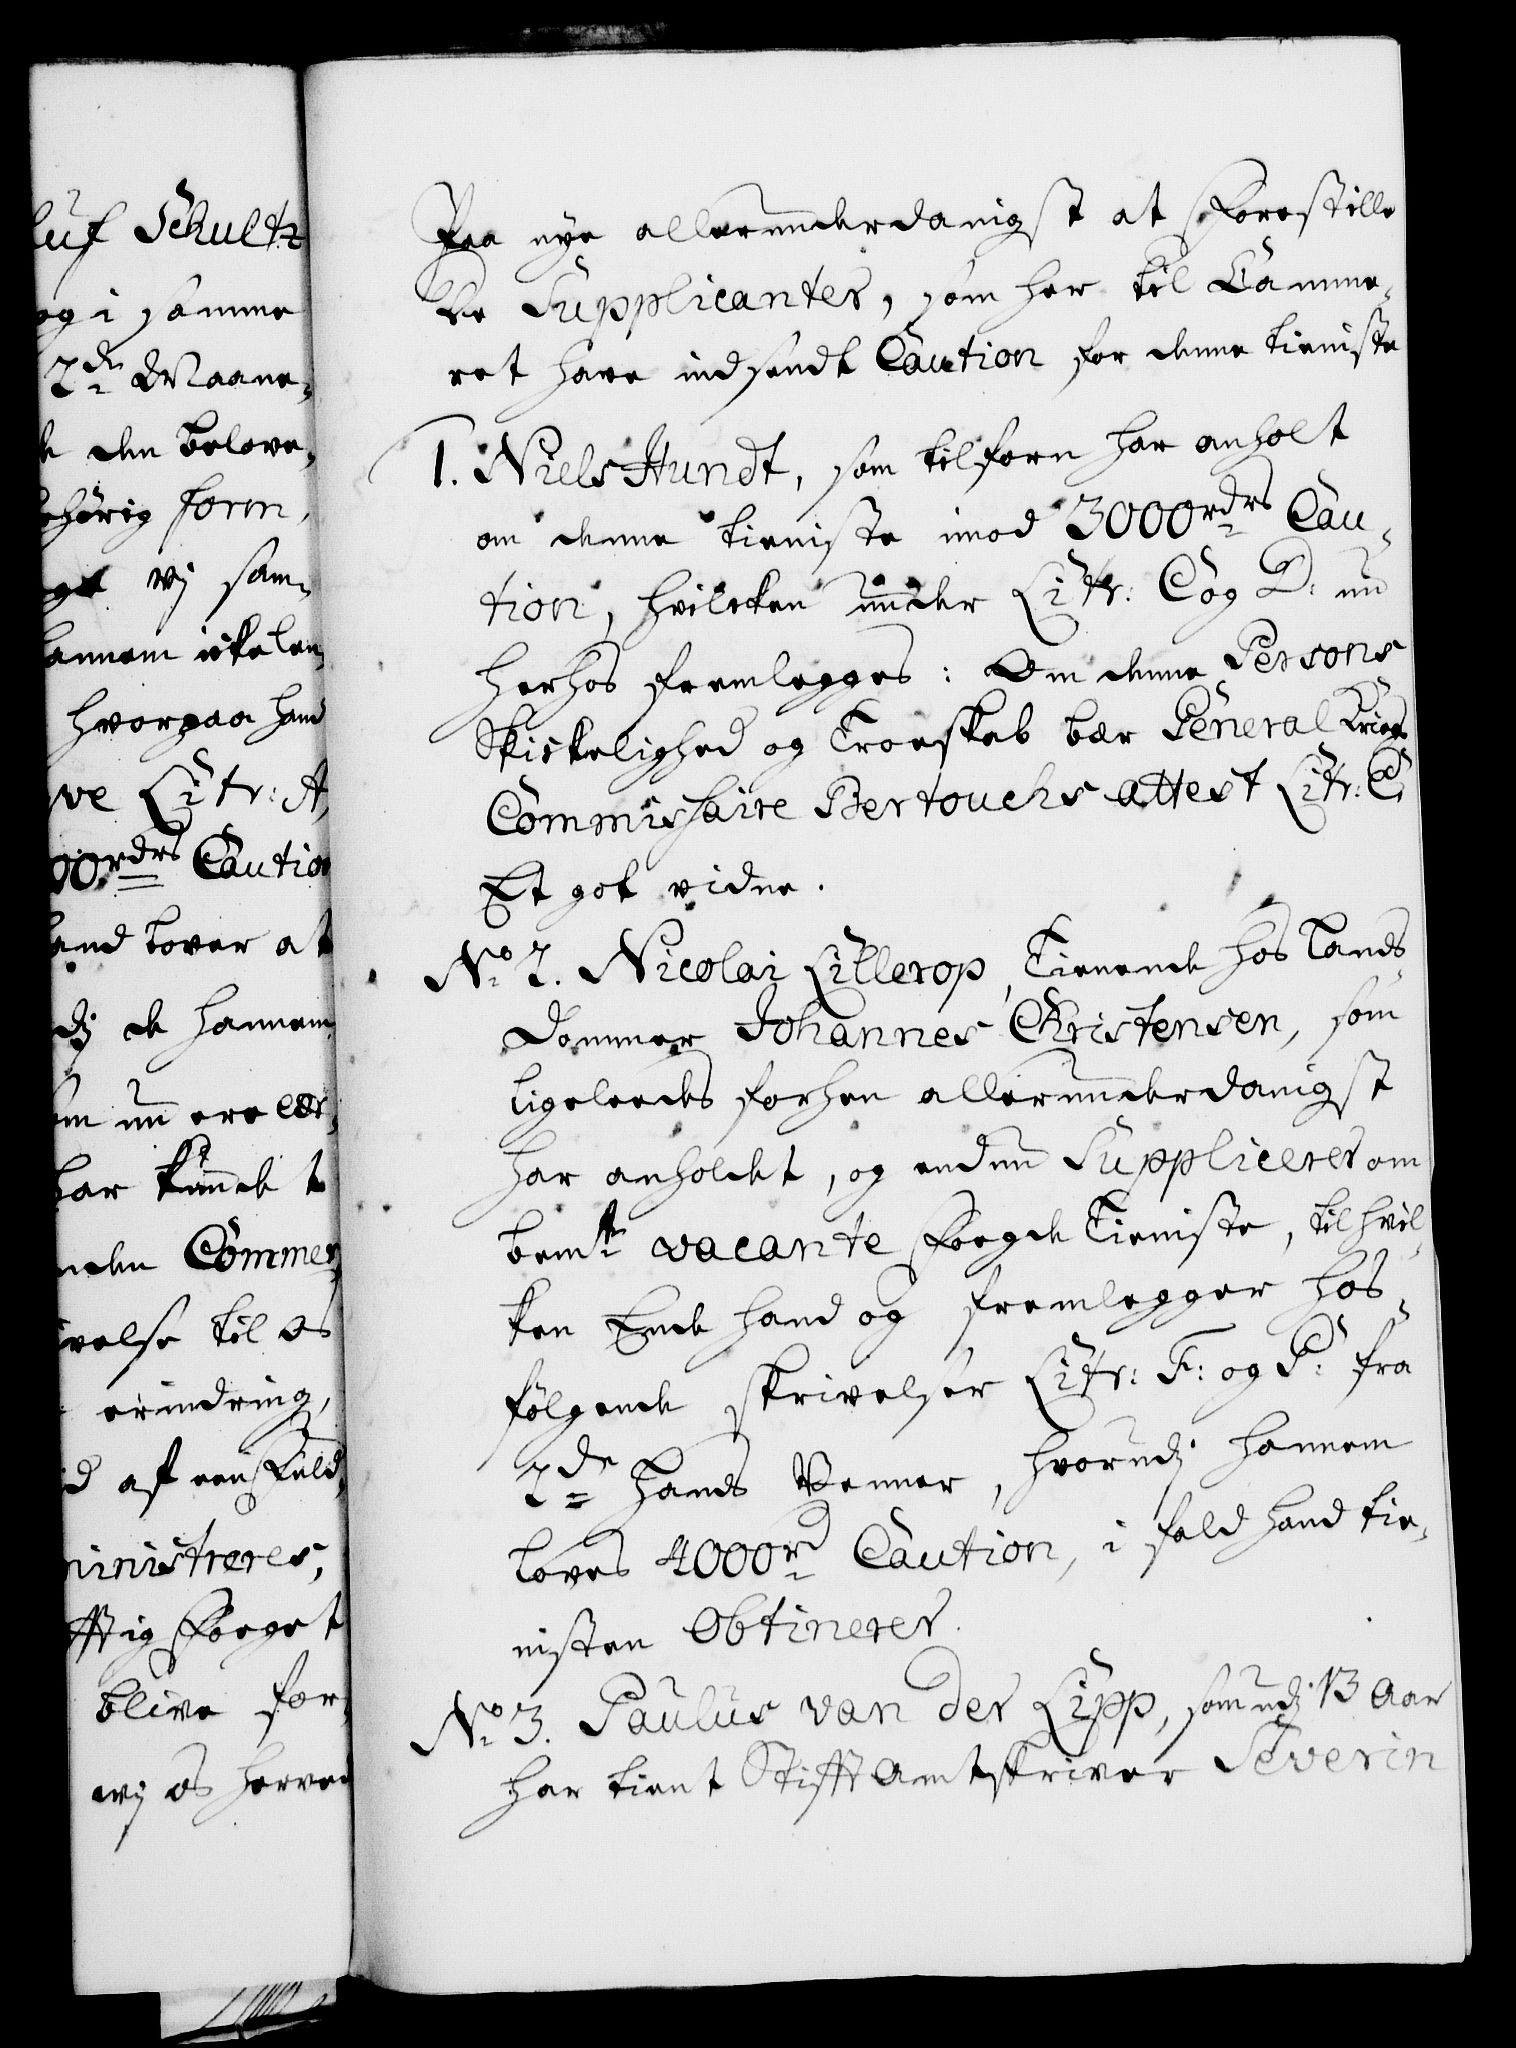 luf Schultz
og i samme
2de Maane-
den belove-
behörig form,
wj sam-
hannem
hvorpaa hand
Litr: A,
00 rdrs Caution
hand lover at
dj de hannem
nu ere
har kunde
Commer
velse til os
erindring,
af een Fuld-
ministreres,
Foeget
blive for-
wj os herved
Paa nye allerunderdanigst at Forestille
De Supplicanter, som her til Camme-
ret have indsendt Caution for denne tieniste
1. Niels Hundt, som tilforn har anholt
om denne tieniste imod 3000 rdrs Cau-
tion, hvilcken under Litr: C og D: nu
herhos fremlegges: Om denne Persons
Skickelighed og Troeskab bær General Krigs
Commishaire Bertouchs attest Litr: E
Et got vidne.
No 2. Nicolai Lillerop, Tienende hos Lands-
Dommer Johannes Christensen, som
ligeleedes forhen allerunderdanigst
har anholdet, og endnu Supplicerer om
bemte vacante Foegde Tieniste, til hvil-
ken Ende hand og fremlegger hos-
følgende skrivelser Litr: F: og G: fra
2de hands Venner, hvorudj hannem
loves 4000 rd Caution, i fald hand tie-
nisten Obtinerer.
No 3. Paulus van der Lipp, som udj 13 Aar
har tient Stifft Amtskriver Severin